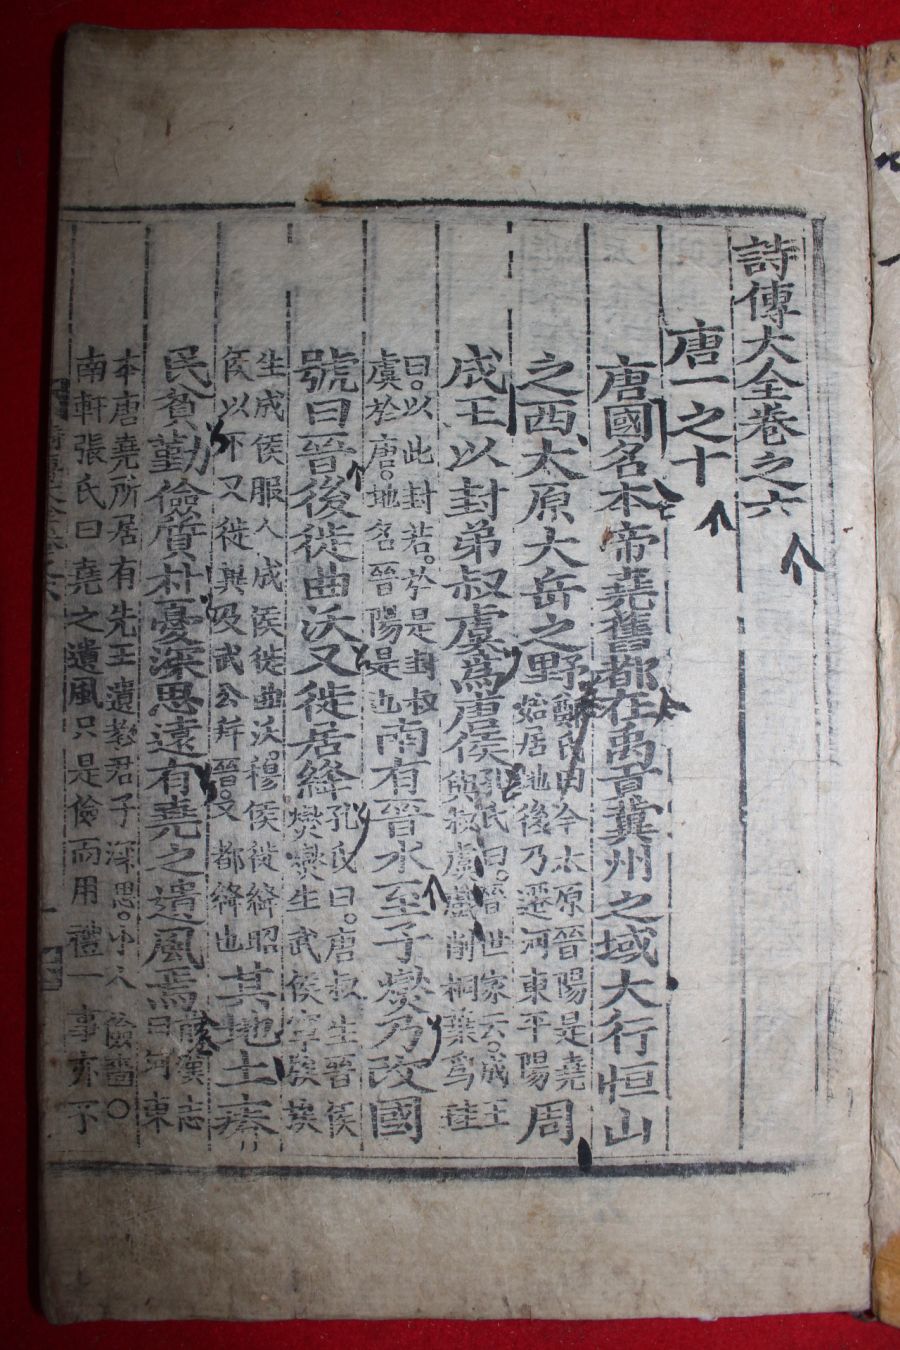 詩傳大全卷之六
唐一之十
唐國名本帝堯舊都在禹貢冀州之域大行恒山
之西太原大岳之野
蘇氏曰今太原晉陽是堯
始居地後乃遷河東平陽
周
成王以封弟叔虞爲唐侯
孔氏曰晉世家云成王
與叔虞戱削桐葉爲珪
曰以此封若於是封叔
虞於唐地名晉陽是也
南有晉水至子燮乃改國
號曰晉後徙曲沃又徙居絳
孔氏曰唐叔生晉侯
燮燮生武侯寧族族
生成侯服人成侯徙曲沃穆侯徙絳昭
侯以下又徙翼及武公幷晉又都絳也
其地土瘠
民貧勤儉質朴憂深思遠有堯之遺風焉
前漢志
曰河東
本唐堯所居有先王遺敎君子深思小人儉嗇○
南軒張氏曰堯之遺風只是儉而用禮一事亦不